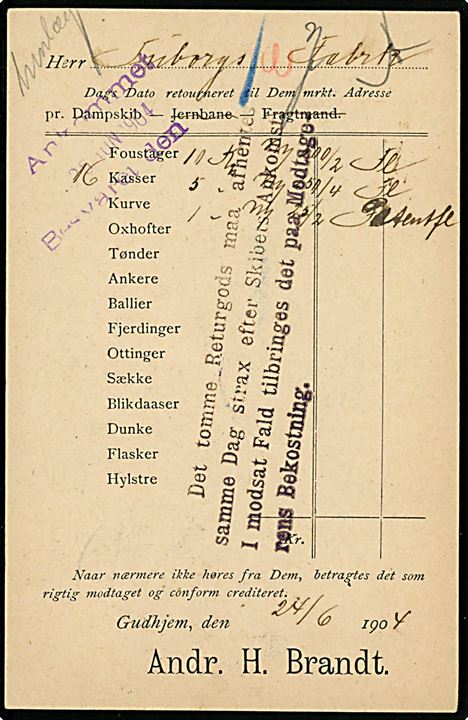 Herr Tuborgs Fabrik
Dags Dato returneret til Dem mrkt. Adresse
pr. Dampskib — Jernbane — Fragtmand.
Ankommet
JUN. 1904
Besvaret den
Foustager 10 K 50/2 Fl
16 Kasser 5 50/4 Fl
Kurve 1 25/2 Patentfl
Oxhofter
Tønder
Ankere
Ballier
Fjerdinger
Ottinger
Sække
Blikdaaser
Dunke
Flasker
Hylstre
Kr.
Det tomme Returgods maa afhentes
samme Dag strax efter Skibets Ankomst
I modsat Fald tilbringes det paa Modtage-
rens Bekostning.
Naar nærmere ikke høres fra Dem, betragtes det som
rigtig modtaget og conform crediteret.
Gudhjem, den 24/6 1904
Andr. H. Brandt.